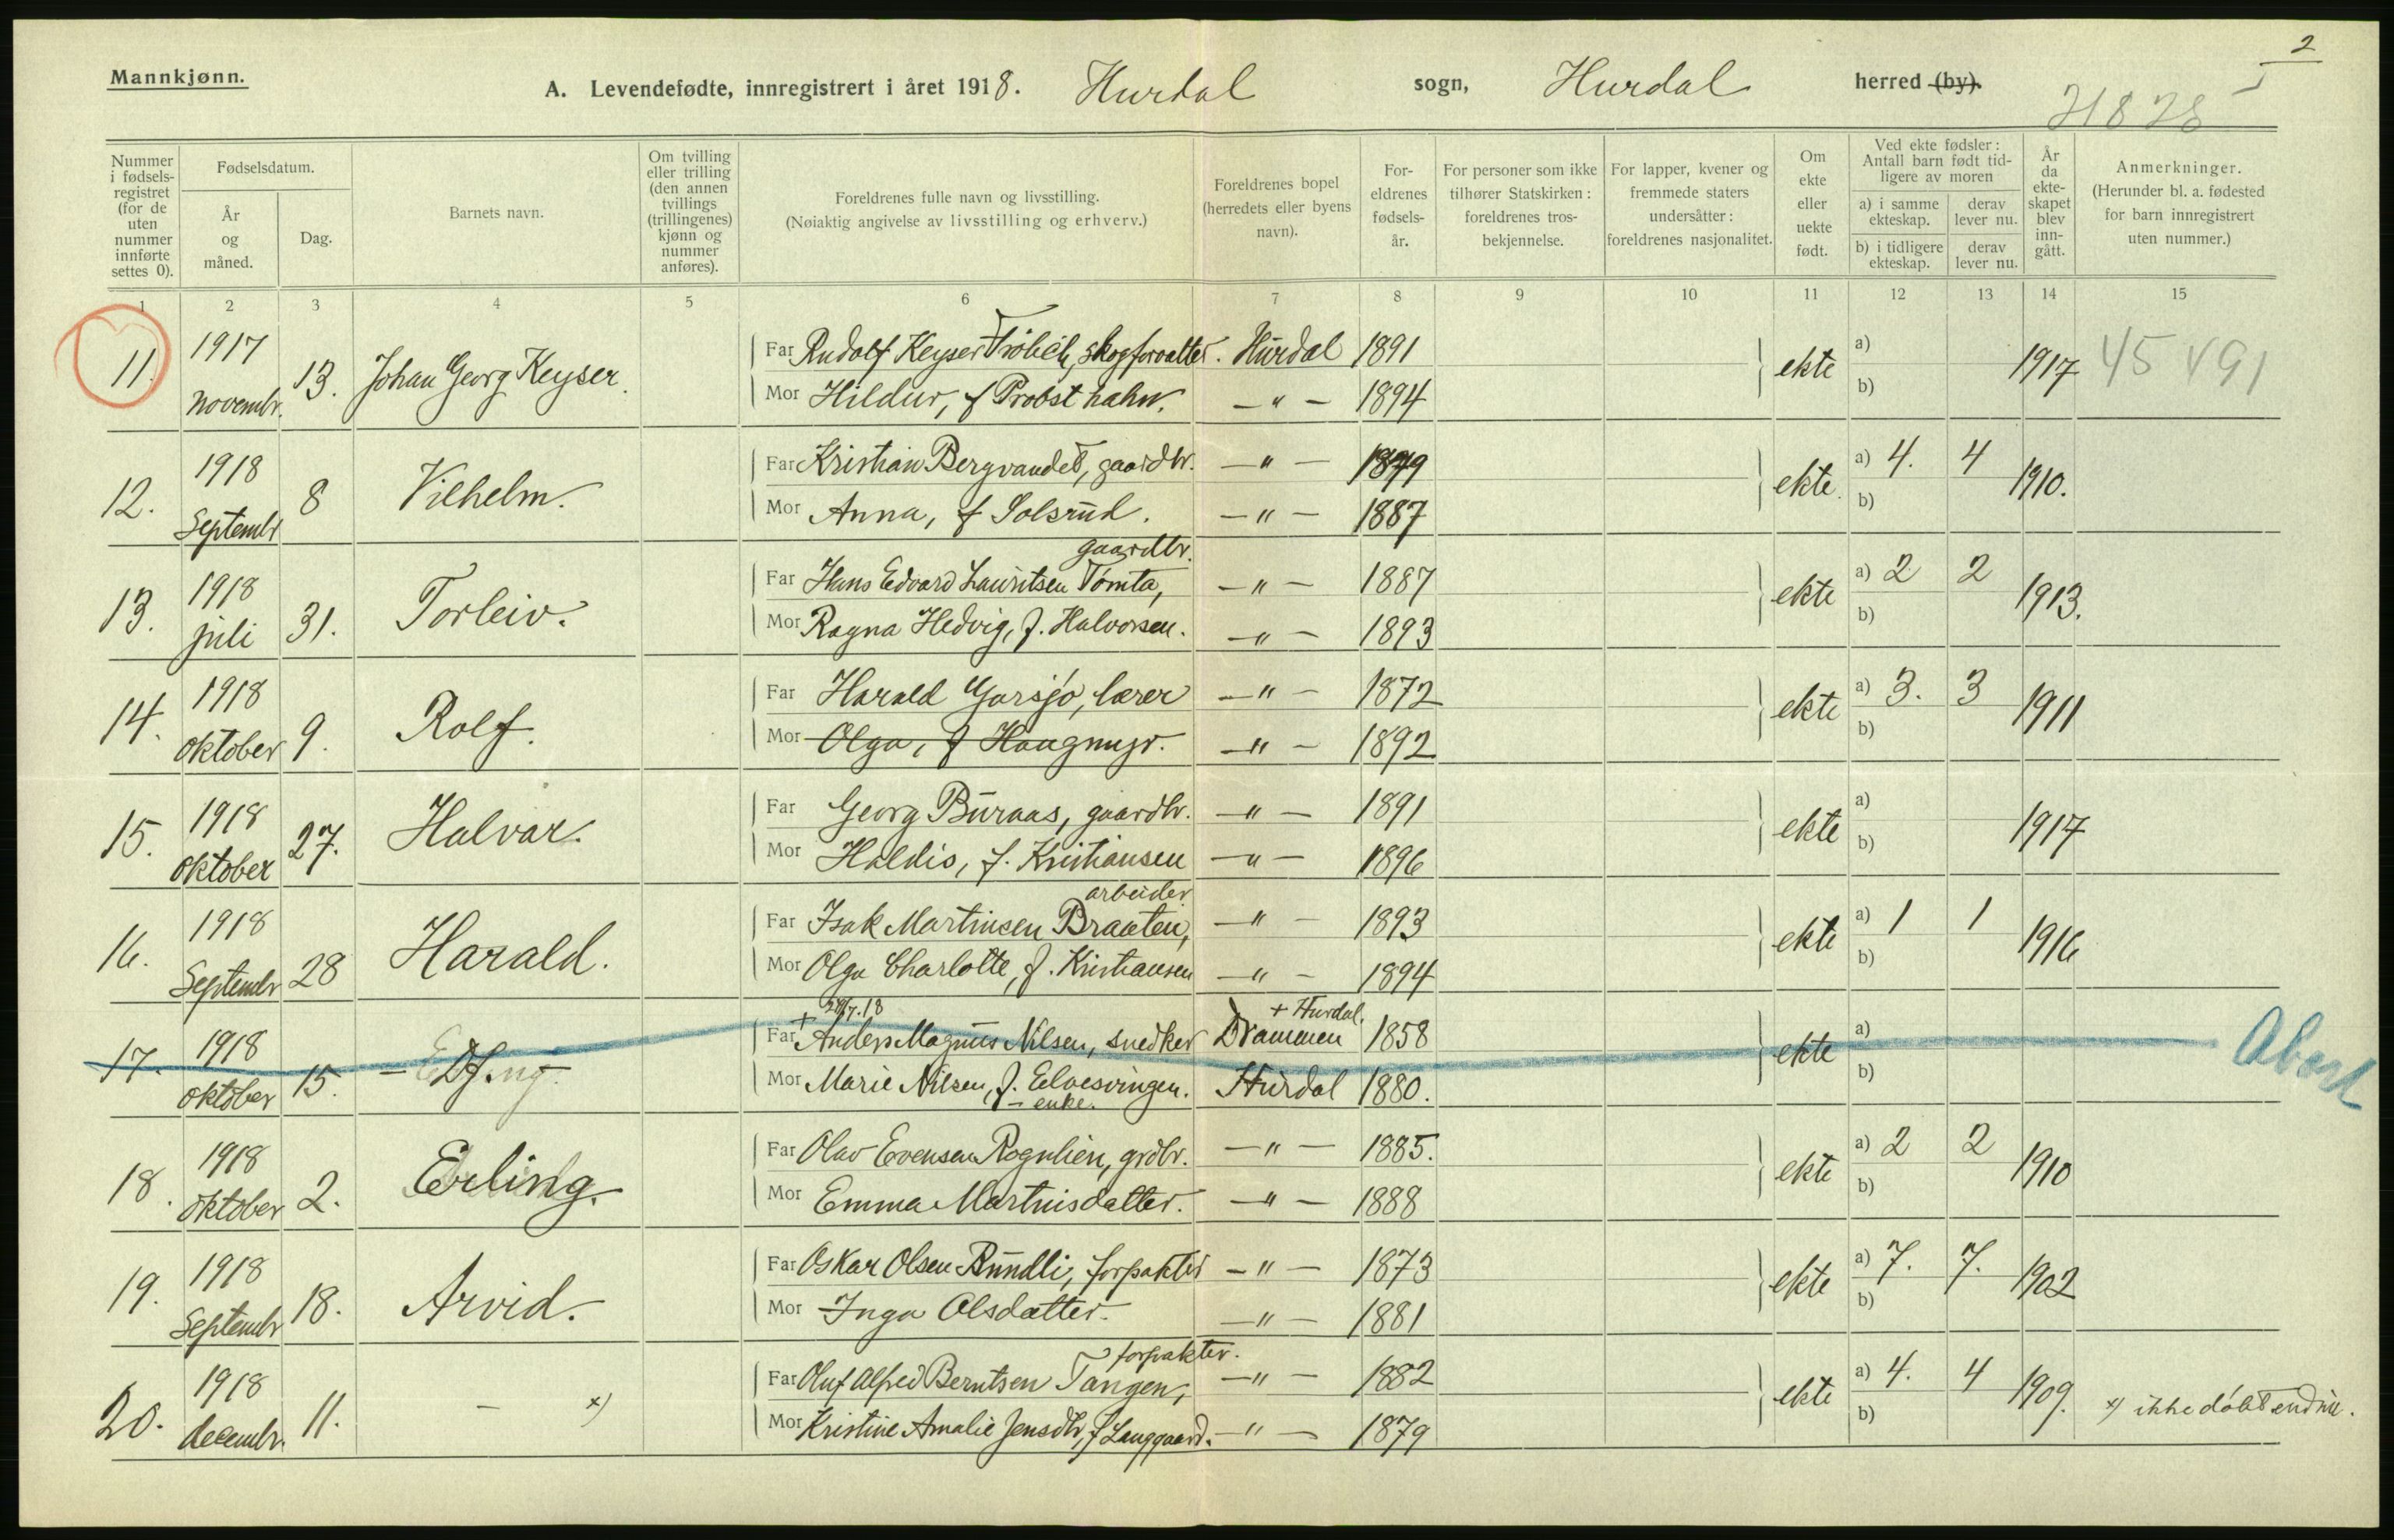 2
Mannkjønn.
A. Levendefødte, innregistrert i året 1918. Hurdal sogn, Hurdal herred (by).
Nummer i fødsels-registret (for de uten nummer innførte settes 0).
Fødselsdatum.
År og måned.
Dag.
Barnets navn.
Om tvilling eller trilling (den annen tvillings (trillingenes) kjønn og nummer anføres).
Foreldrenes fulle navn og livsstilling.
(Nøiaktig angivelse av livsstilling og erhverv.)
Foreldrenes bopel (herredets eller byens navn).
For-eldrenes fødsels-år.
For personer som ikke tilhører Statskirken: foreldrenes tros-bekjennelse.
For lapper, kvener og fremmede staters undersåtter: foreldrenes nasjonalitet.
Om ekte eller uekte født.
Ved ekte fødsler: Antall barn født tid-ligere av moren
a) i samme ekteskap.
derav lever nu.
b) i tidligere ekteskap.
derav lever nu.
År da ekte-skapet blev inn-gått.
Anmerkninger.
(Herunder bl. a. fødested for barn innregistrert uten nummer.)
1 2 3 4 5 6 7 8 9 10 11 12 13 14 15
11. 1917 novembr. 13. Johan Georg Keyser.
Far Rudolf Keyser Frölich, skogforvalter. Hurdal 1891 ekte a) 1917 45 V 91
Mor Hildur, f Probst hahn. —"— 1894 b)
12. 1918 Septembr 8 Vilhelm.
Far Kristian Bergvandet, gaardbr. —"— 1879 ekte. a) 4. 4 1910.
Mor Anna, f Solsrud. —"— 1887 b)
gaardbr.
13. 1918 juli 31. Torleiv.
Far Hans Edvard Lauritsen Tømta, —"— 1887 ekte a) 2 2 1913.
Mor Ragna Hedvig, f. Halvorsen. —"— 1893 b)
14. 1918 oktober 9. Rolf.
Far Harald Garsjø, lærer —"— 1872 ekte a) 3. 3 1911
Mor Olga, f Haugmyr. —"— 1892 b)
15. 1918 oktober 27. Halvar.
Far Georg Buraas, gaardbr. —"— 1891 ekte a) 1917
Mor Haldis, f. Kristiansen —"— 1896 b)
arbeider
16. 1918 Septembr 28 Harald.
Far Isak Martinsen Braaten, —"— 1893 ekte a) 1 1 1916
Mor Olga Charlotte, f. Kristiansen —"— 1894 b)
+ Hurdal.
17. 1918 oktober 15. —
Far + Anders Magnus Nilsen, snedker Drammen 1858 ekte a)
Mor Marie Nilsen, f. Eelvesvingen. Hurdal 1880. b)
– enke.
18. 1918 oktober 2. Erling.
Far Olav Evensen Rognlien, grdbr. —"— 1885. ekte a) 2 2 1910
Mor Emma Martinisdatter. —"— 1888 b)
19. 1918 Septembr 18. Arvid.
Far Oskar Olsen Rundli, forpakter —"— 1873 ekte a) 7. 7. 1902
Mor Inga Olsdatter. —"— 1881 b)
forpakter.
20. 1918 decembr. 11. — x)
Far Oluf Alfred Berntsen Tangen, —"— 1882 ekte a) 4. 4 1909. x) ikke døbt endnu.
Mor Kristine Amalie Jensdtr, f Langgaard. —"— 1879 b)